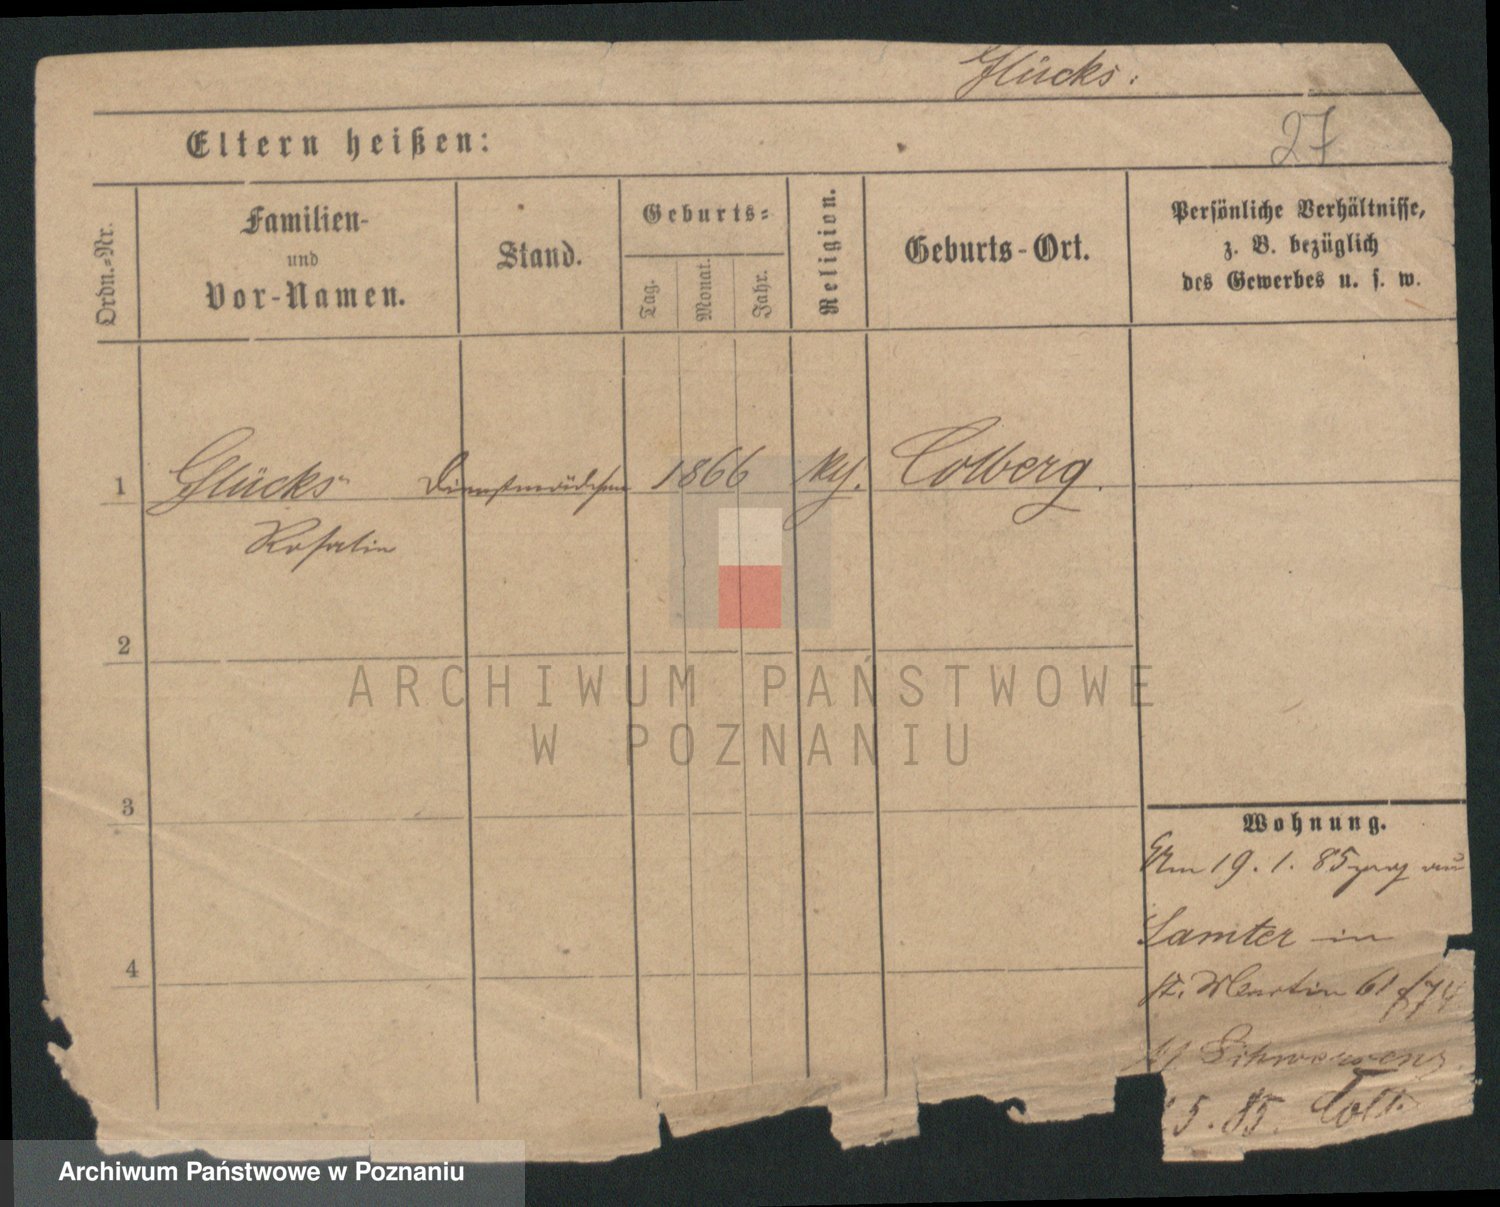 Glücks.
27
Eltern heißen:
Ordn.-Nr.
Familien-
und
Vor-Namen.
Stand.
Geburts-
Tag.
Monat.
Jahr.
Religion.
Geburts-Ort.
Persönliche Verhältnisse,
z. B. bezüglich
des Gewerbes u. s. w.
1 Glücks Dienstmädchen 1866 Colberg.
Rosalie
2
3
4
Wohnung.
Am 19. 1. 85
Samter in
St. Martin 61
Schwersenz
5. 85.
ARCHIWUM PAŃSTWOWE
W POZNANIU
Archiwum Państwowe w Poznaniu